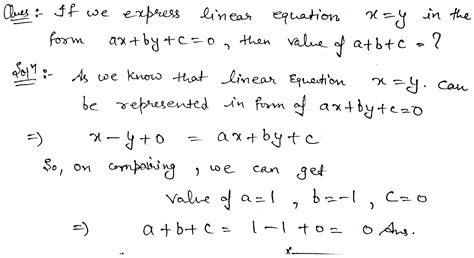 Ques:- If we express linear equation x=y in the
form ax+by+c=0, then value of a+b+c = ?
Solⁿ:- As we know that linear equation x=y. can
be represented in form of ax+by+c=0
=) x-y+0 = ax+by+c
So, on comparing, we can get
value of a=1, b=-1, c=0
=) a+b+c = 1-1+0= 0 Ans.
x